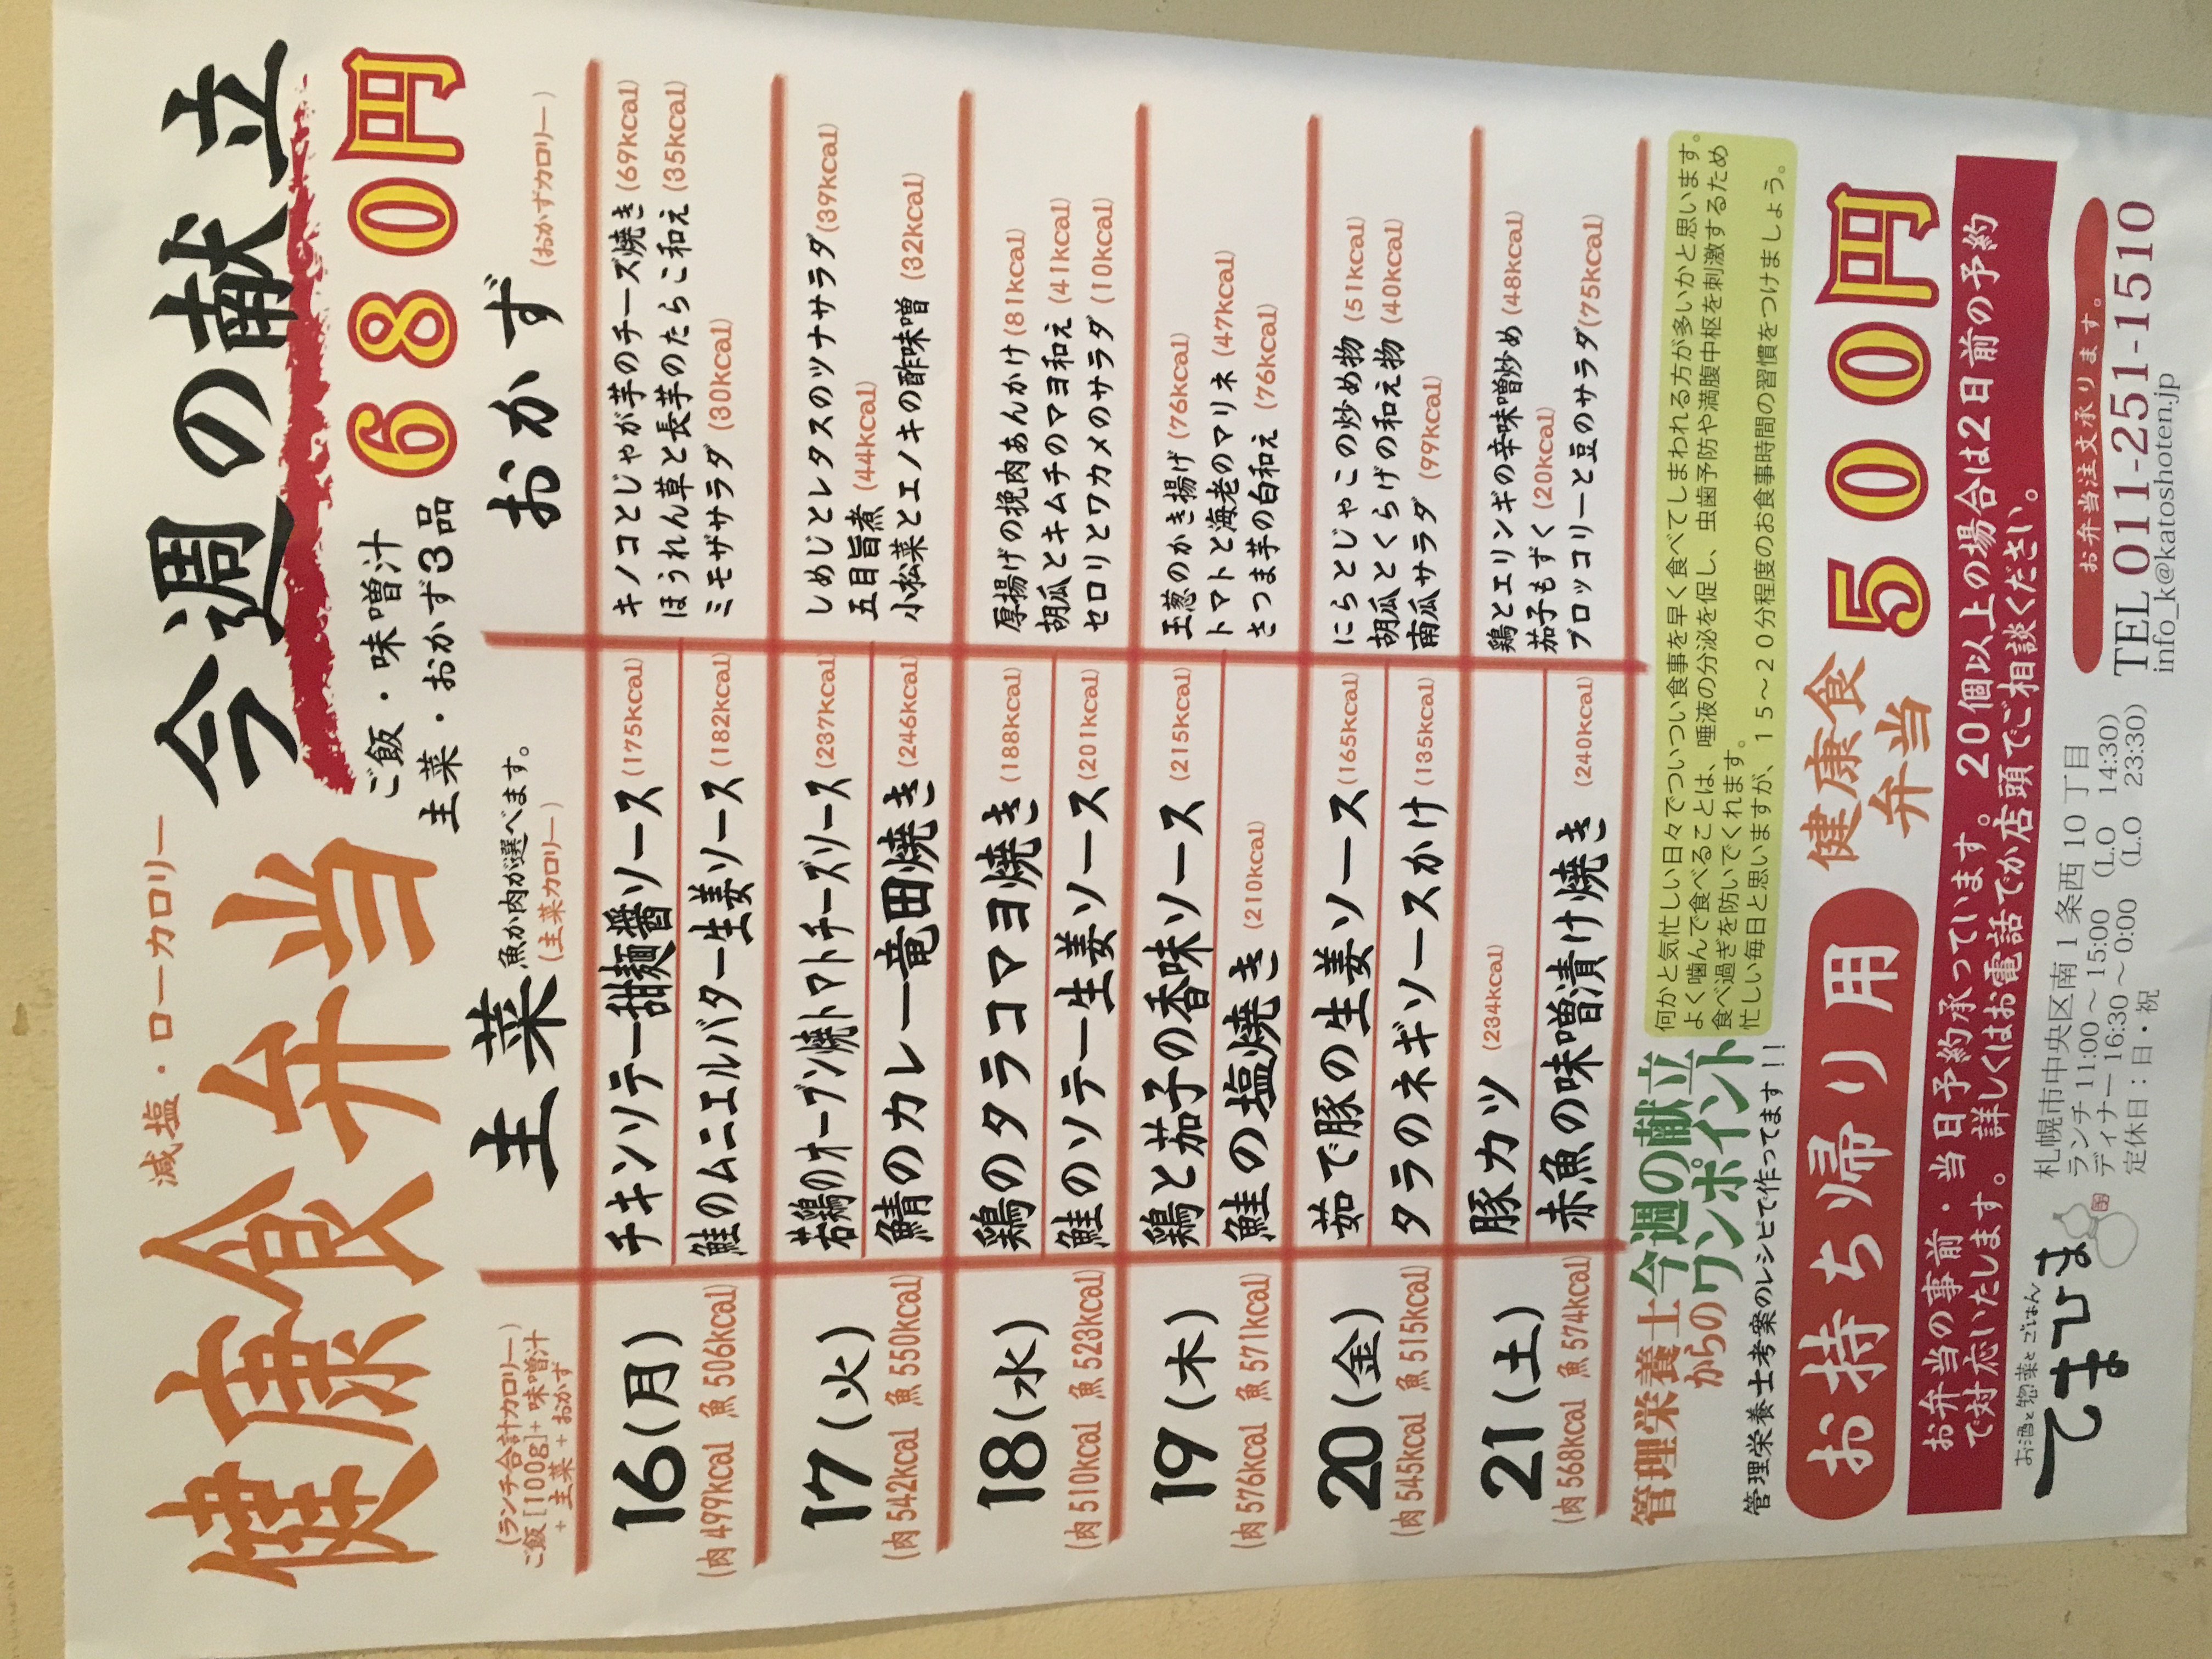 減塩・ローカロリー
健康食弁当
今週の献立
ご飯・味噌汁
主菜・おかず3品
680円
(ランチ合計カロリー)
ご飯[100g]+味噌汁
+主菜+おかず
主菜
魚か肉が選べます。
(主菜カロリー)
おかず
(おかずカロリー)
16(月)
(肉 499kcal 魚 506kcal)
チキンソテー甜麺醤ソース(175kcal)
鮭のムニエルバター生姜ソース(182kcal)
キノコとじゃが芋のチーズ焼き(69kcal)
ほうれん草と長芋のたらこ和え(35kcal)
ミモザサラダ(30kcal)
17(火)
(肉 542kcal 魚 550kcal)
若鶏のオーブン焼トマトチーズソース(237kcal)
鯖のカレー竜田焼き(246kcal)
しめじとレタスのツナサラダ(39kcal)
五目旨煮(44kcal)
小松菜とエノキの酢味噌(32kcal)
18(水)
(肉 510kcal 魚 523kcal)
鶏のタラコマヨ焼き(188kcal)
鮭のソテー生姜ソース(201kcal)
厚揚げの挽肉あんかけ(81kcal)
胡瓜とキムチのマヨ和え(41kcal)
セロリとワカメのサラダ(10kcal)
19(木)
(肉 576kcal 魚 571kcal)
鶏と茄子の香味ソース(215kcal)
鮭の塩焼き(210kcal)
玉葱のかき揚げ(76kcal)
トマトと海老のマリネ(47kcal)
さつま芋の白和え(76kcal)
20(金)
(肉 545kcal 魚 515kcal)
茹で豚の生姜ソース(165kcal)
タラのネギソースかけ(135kcal)
にらとじゃこの炒め物(51kcal)
胡瓜とくらげの和え物(40kcal)
南瓜サラダ(99kcal)
21(土)
(肉 568kcal 魚 574kcal)
豚カツ(234kcal)
赤魚の味噌漬け焼き(240kcal)
鶏とエリンギの辛味噌炒め(48kcal)
茄子もずく(20kcal)
ブロッコリーと豆のサラダ(75kcal)
管理栄養士からの
今週の献立ワンポイント
管理栄養士考案のレシピで作ってます!!
何かと気忙しい日々でついつい食事を早く食べてしまわれる方が多いかと思います。
よく噛んで食べることは、唾液の分泌を促し、虫歯予防や満腹中枢を刺激するため
食べ過ぎを防いでくれます。
忙しい毎日と思いますが、15~20分程度のお食事時間の習慣をつけましょう。
お持ち帰り用
健康食弁当
500円
お弁当の事前・当日予約承っています。20個以上の場合は2日前の予約
で対応いたします。詳しくはお電話でか店頭でご相談ください。
お酒と惣菜とごはん
てまひま
札幌市中央区南1条西10丁目
ランチ 11:00~15:00 (L.O 14:30)
ディナー 16:30~0:00 (L.O 23:30)
定休日:日・祝
お弁当注文承ります。
TEL 011-251-1510
info_k@katoshoten.jp